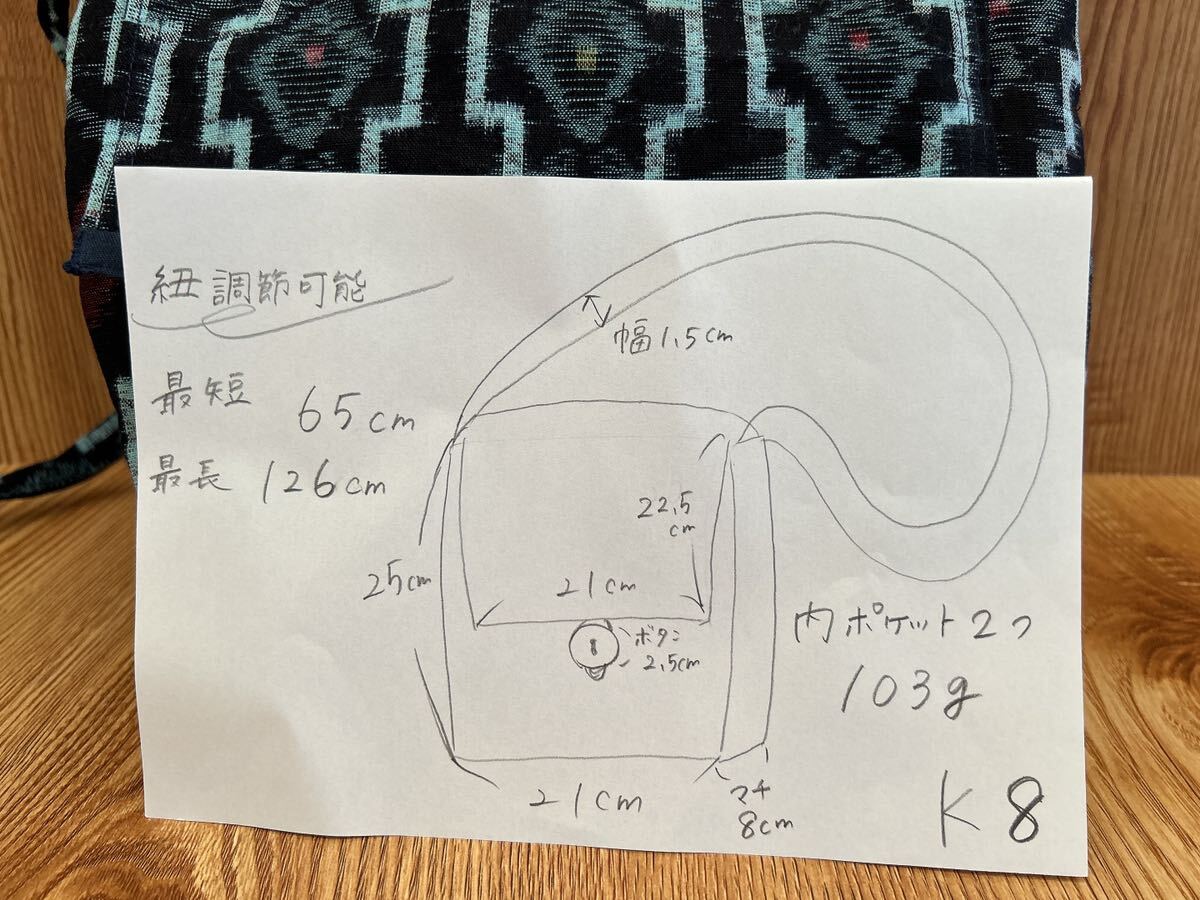 紐調節可能
最短 65cm
最長 126cm
幅1.5cm
22.5
cm
25cm
21cm
ボタン
2.5cm
内ポケット2つ
103g
21cm
マチ
8cm
K8